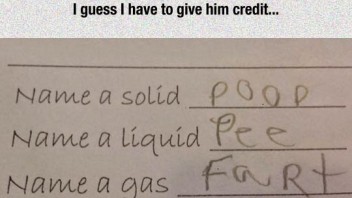 I guess I have to give him credit...
Name a solid poop
Name a liquid Pee
Name a gas FaRt